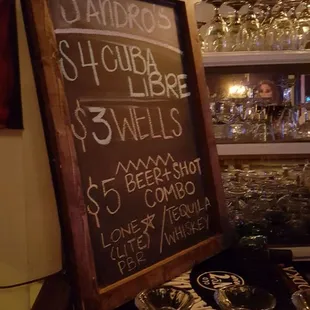 SANDRO'S
$4 CUBA
LIBRE
$3 WELLS
$5 BEER + SHOT
COMBO
LONE / TEQUILA
(LITE) WHISKEY
PBR